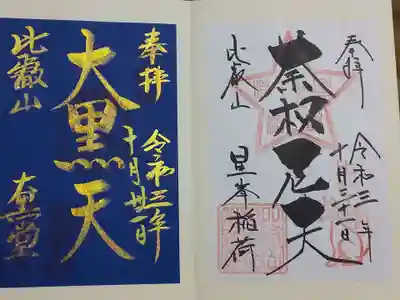 奉拝
令和三年
十月三十一日
荼枳尼天
比叡山
星峯稲荷
奉拝
令和三年
十月卅一日
大黒天
比叡山